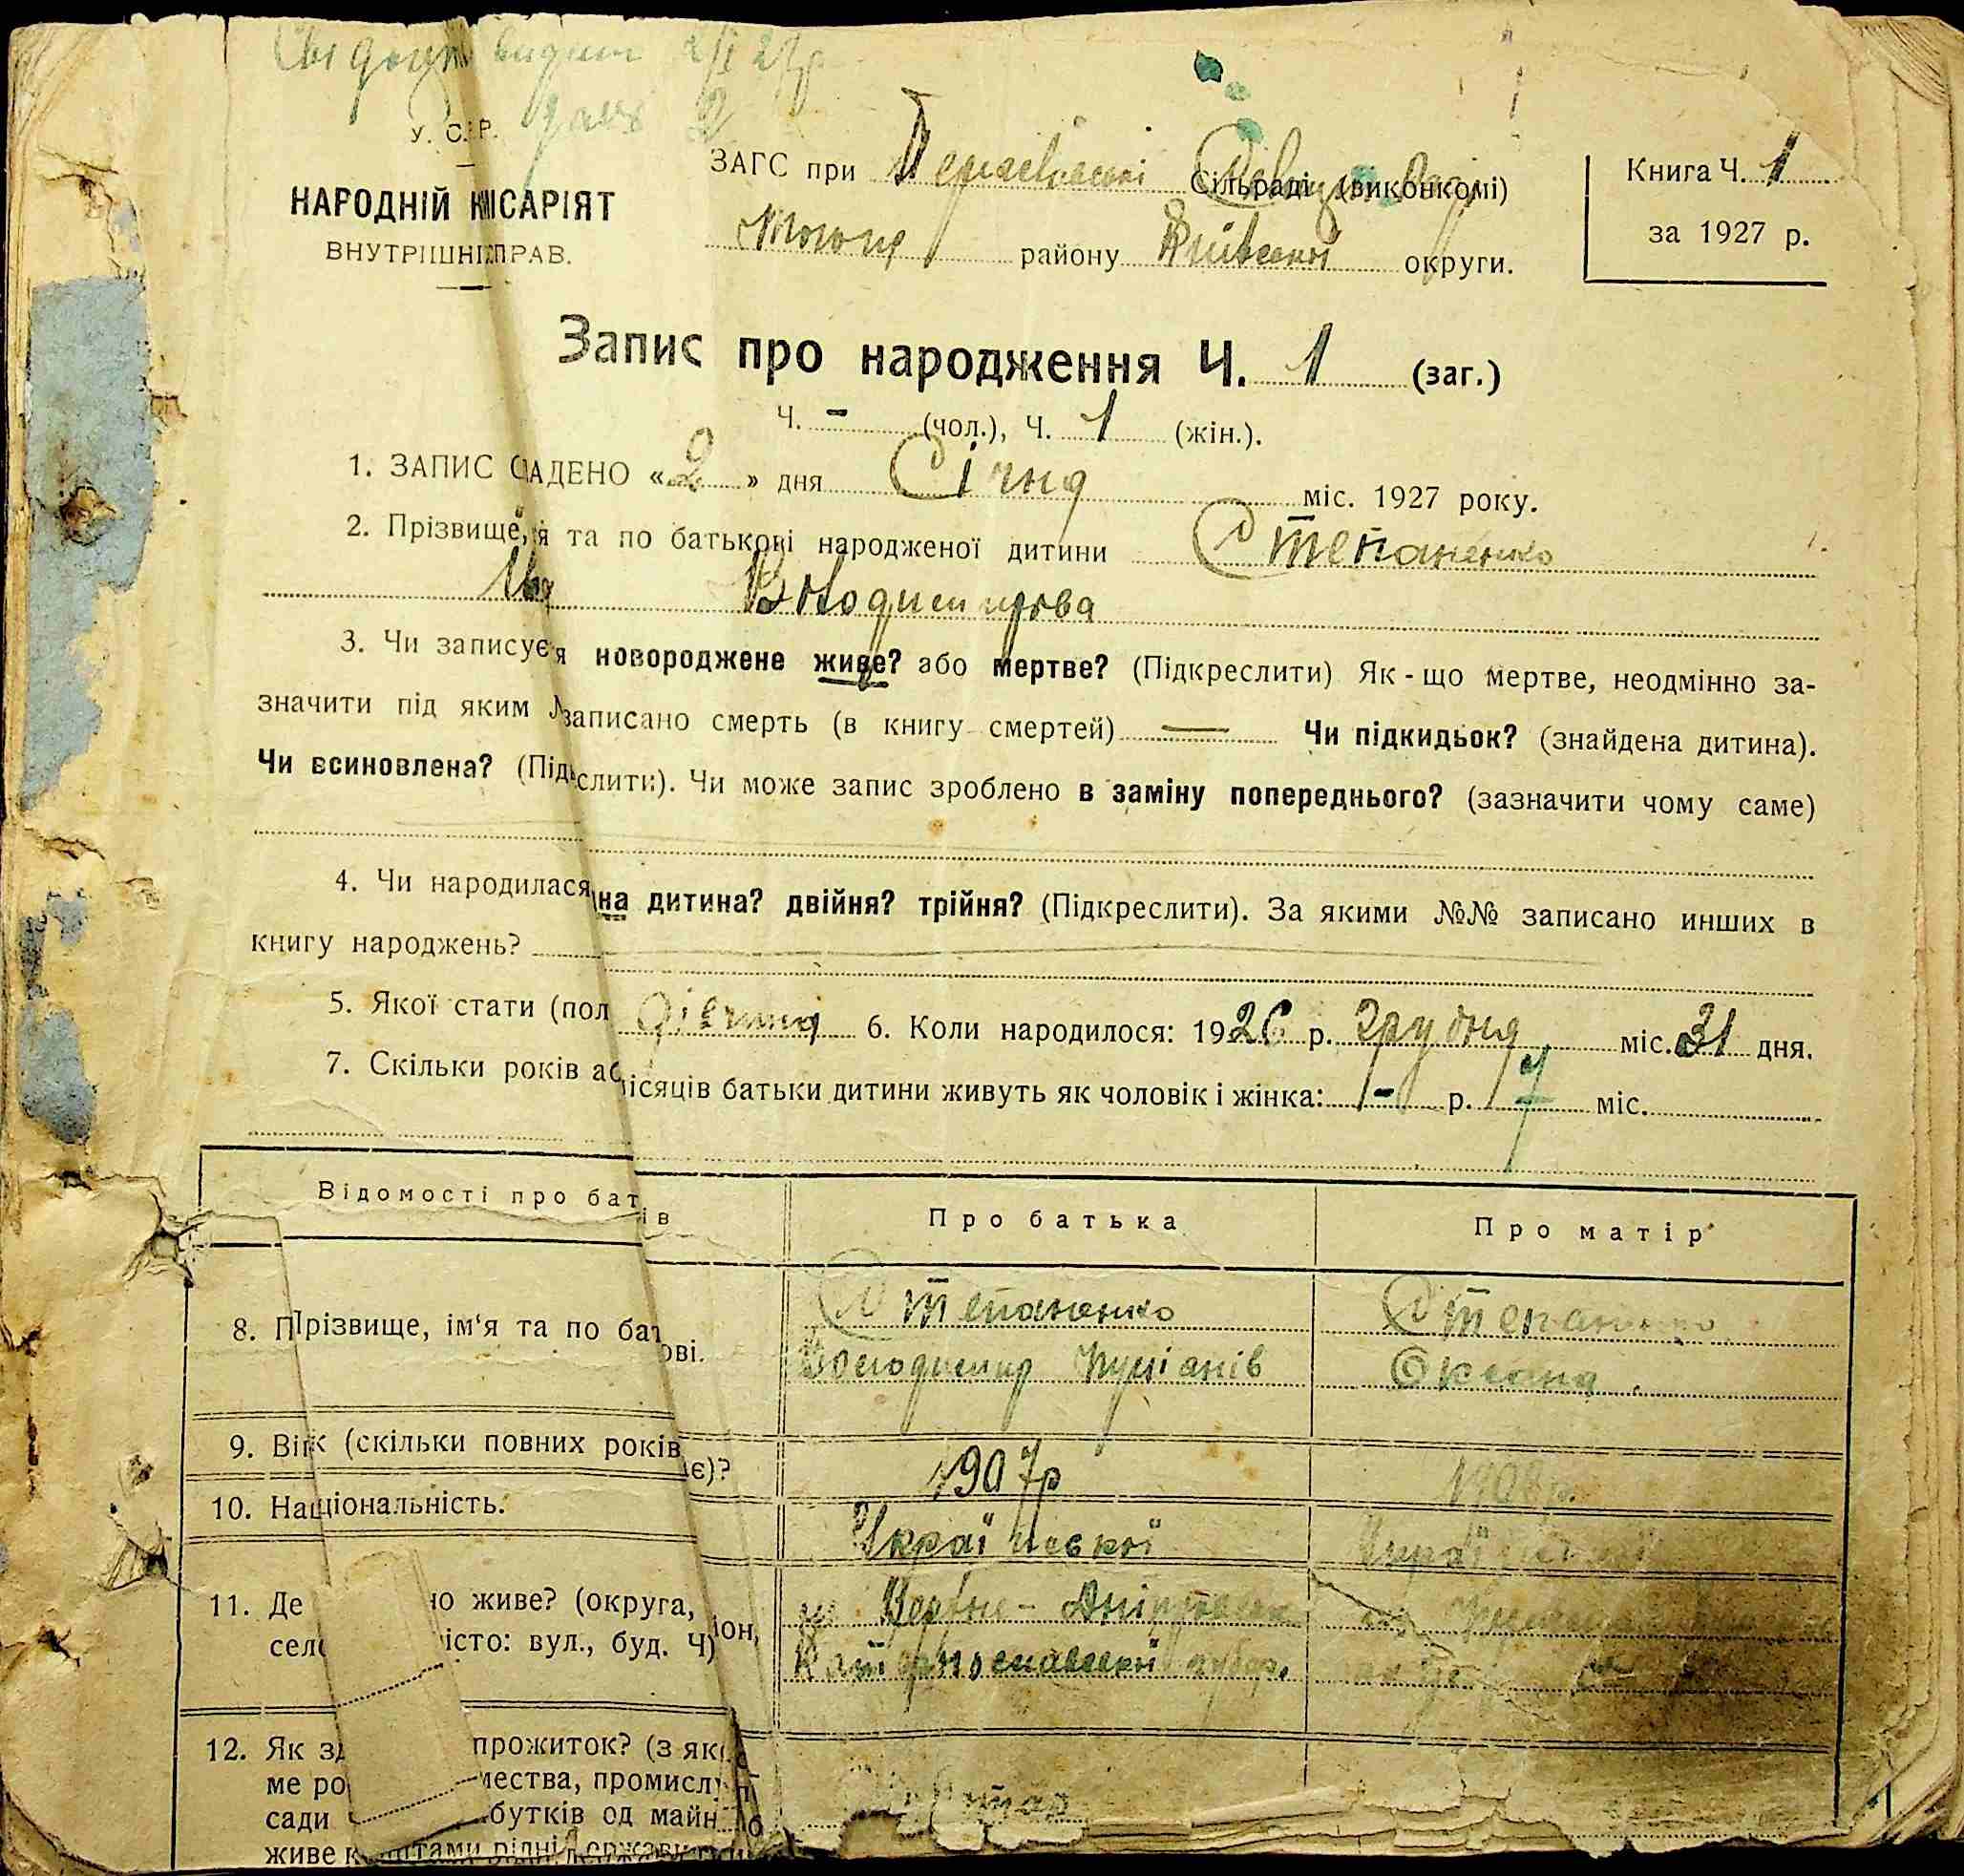 видат 2/I 27р.
У. С. Р.
НАРОДНІЙ КОМІСАРІЯТ
ВНУТРІШНІХ СПРАВ.
ЗАГС при Сільраді (виконкомі)
району Київської округи.
Книга Ч. 1
за 1927 р.
Запис про народження Ч. 1 (заг.)
Ч. - (чол.), Ч. 1 (жін.).
1. ЗАПИС СКЛАДЕНО «2» дня Січня міс. 1927 року.
2. Прізвище, ім'я та по батькові народженої дитини Степаненко
Володимирова
3. Чи записується новороджене живе? або мертве? (Підкреслити) Як-що мертве, неодмінно за-
значити під яким № записано смерть (в книгу смертей) — Чи підкидьок? (знайдена дитина).
Чи всиновлена? (Підкреслити). Чи може запис зроблено в заміну попереднього? (зазначити чому саме)
4. Чи народилася одна дитина? двійня? трійня? (Підкреслити). За якими №№ записано инших в
книгу народжень?
5. Якої стати (пол дівчина 6. Коли народилося: 1926 р. грудня міс. 31 дня.
7. Скільки років або місяців батьки дитини живуть як чоловік і жінка: - р. 7 міс.
Відомості про батьків Про батька Про матір
8. Прізвище, ім'я та по батькові. Степаненко Степаненко
Володимир Оксана.
9. Вік (скільки повних років має)? 1907р 1908р.
10. Національність. Української Української
11. Де живе? (округа, район, Верхне-Дніпровськ
село місто: вул., буд. Ч) Катеринославської губер.
12. Як прожиток? (з яко
ме ро мества, промисл
сади бутків од майн
живе коштами рідні